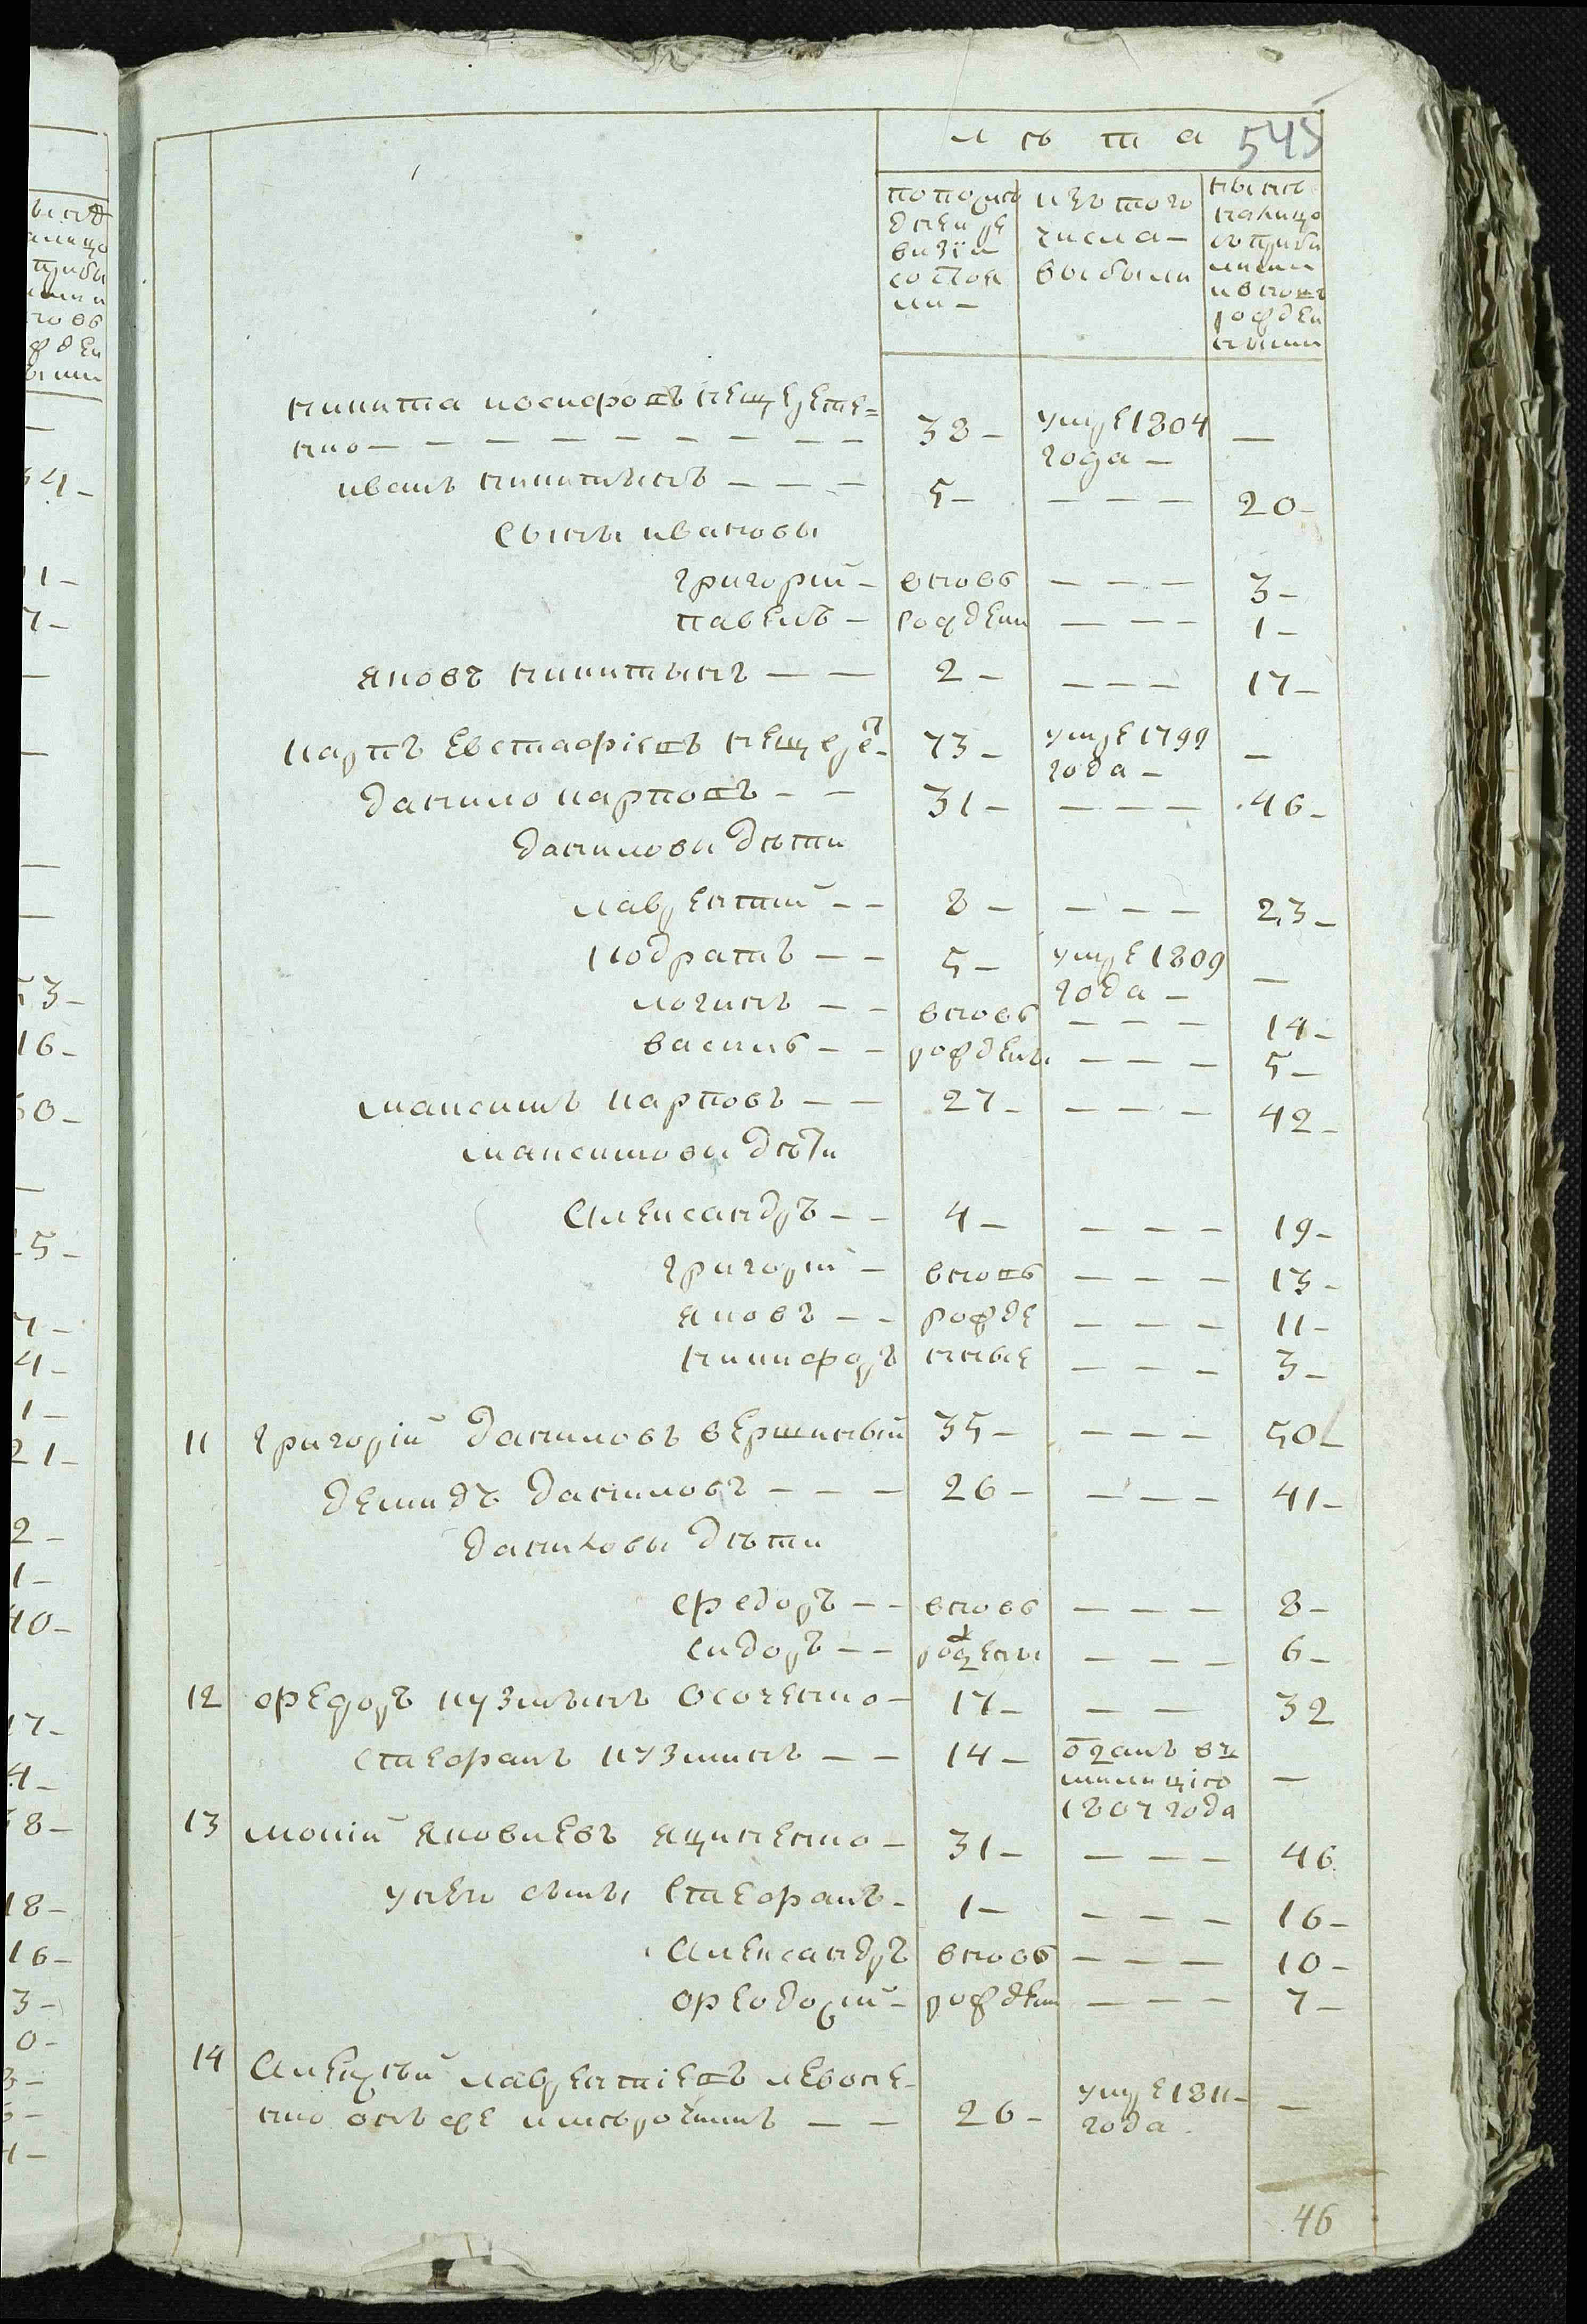 лѣта 545
по послѣ
дней ре
визіи
состоя
ли —
изъ того
числа —
выбыли
нынѣ
налицо
съ прибы
лыми
и вновь
рожден
ными
никита иосифовъ нещерете=
нко — — — — — — — — — 38 — умре 1804 года — —
иванъ никитинъ — — — 5 — — — — 20 —
сыны ивановы
григорій — вновь — — — 3 —
павелъ — рожден — — — 1 —
яковъ никитынъ — — 2 — — — — 17 —
карпъ евстафіевъ нещерет — 73 — умре 1799 года — —
данило карповъ — — 31 — — — — 46 —
данилови дѣти
лаврентій — — 8 — — — — 23 —
кодратъ — — 5 — умре 1809 года — —
логинъ — — вновь — — — 14 —
василь — — рождены — — — 5 —
максимъ карповъ — — 27 — — — — 42 —
максимови дѣти
Александръ — — 4 — — — — 19 —
григорій — вновь — — — 13 —
яковъ — — рожде — — — 11 —
никифоръ нные — — — 3 —
11 григорій даниловъ вершинный 35 — — — — 50
демидъ даниловъ — — — 26 — — — — 41 —
даниловы дѣти
федоръ — — вновь — — — 8 —
сидоръ — — рождены — — — 6 —
12 федоръ кузминъ осоченко — 17 — — — 32
стефанъ кузминъ — — 14 — отданъ въ милицію 1807 года —
13 мокій яковлевъ яциненко — 31 — — — — 46
у нея сыны стефанъ — 1 — — — — 16 —
Александръ вновь — — — 10 —
феодосій — рожден — — — 7 —
14 Алексѣй лаврентіевъ левоне-
нко онъ же и мѣрочникъ — — 26 — умре 1811 — года —
46